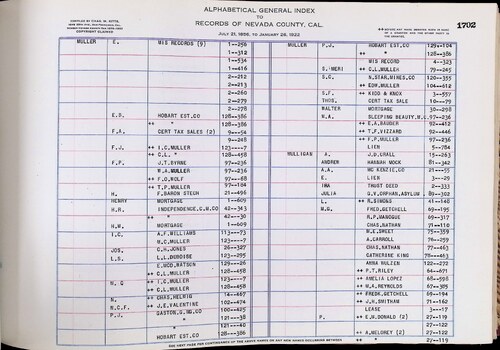 ALPHABETICAL GENERAL INDEX
TO
RECORDS OF NEVADA COUNTY, CAL.
JULY 21, 1856, TO JANUARY 28, 1922
1702
COMPILED BY CHAS. W. KITTS,
COPYRIGHT CLAIMED
MULLER E. MIS RECORDS (9) 1--250
1--312
1--534
1--416
2--212
2--213
2--260
2--279
21--278
E.D. HOBART EST.CO 128--386
" 128--386
F.A. CERT TAX SALES (2) 9--54
9--248
F.J. ++ I.C.MULLER 123--7
++ C.L. " 128--458
F.P. J.T.BYRNE 97--236
W.A.MULLER 97--236
++ F.O.WOLF 97--68
++ T.P.MULLER 97--184
H. F.BARON STECH 1--496
HENRY MORTGAGE 1--609
H.R. INDEPENDENCE,G.M.CO 42--343
++ " 42--30
H.W. MORTGAGE 1--609
I.C. A.F.WILLIAMS 113--73
M.C.MULLER 123--7
JOS. C.H.JONES 26--327
L.S. L.L.DUBOISE 123--295
E.MCD.WATSON 129--26
++ C.L.MULLER 128--458
N.C ++ I.C.MULLER 123--7
++ C.L.MULLER 128--458
N. ++ CHAS.HELWIG 14--467
N.C.F. ++ J.E.VALENTINE 102--474
P.J. GASTON,G,MG,CO 100--425
" 121--38
" 121--40
" 128--386
HOBART EST.CO 128--386
MULLER P.J. HOBART EST.CO 129--104
++ " 128--386
MIS RECORD 4--323
S. ++ C.L.MULLER 79--245
S.C. N.STAR,MINES,CO 120--355
++ EDW.MULLER 104--612
S.F. ++ KIDD & KNOX 3--557
THOS. CERT TAX SALE 10--79
WALTER MORTGAGE 30--298
W.A. SLEEPING BEAUTY,M,C 97--236
++ E.A.BAUDER 92--412
++ T.F.VIZZARD 92--446
++ F.P.MULLER 97--236
LIEN 5--784
MULLIGAN A. J.D.CRALL 15--263
ANDREW HANNAH MOCK 81--342
A.A. MC KENZIE,CO 21--55
E. LIEN 3--29
IMA TRUST DEED 2--333
JULIA G.V.ORPHAN,ASYLUM 89--302
L. ++ R.SIMONS 41--148
M.G. FRED.GETCHELL 69--195
R.P.MANOQUE 69--317
CHAS.NATHAN 71--110
M.E.SWEET 75--359
A.CARROLL 76--259
CHAS.NATHAN 77--463
CATHERINE KING 78--463
ANNA HULZEN 122--272
++ P.T.RILEY 64--671
++ AMELIA LOPEZ 68--598
++ M.A.REYNOLDS 67--305
++ FRED.GETCHELL 69--194
++ J.H.SMITHAM 71--162
LEASE 3--17
P. ++ E.H.DONALD (2) 27--119
27--122
++ A.MELOREY (2) 27--122
++ " 27--119